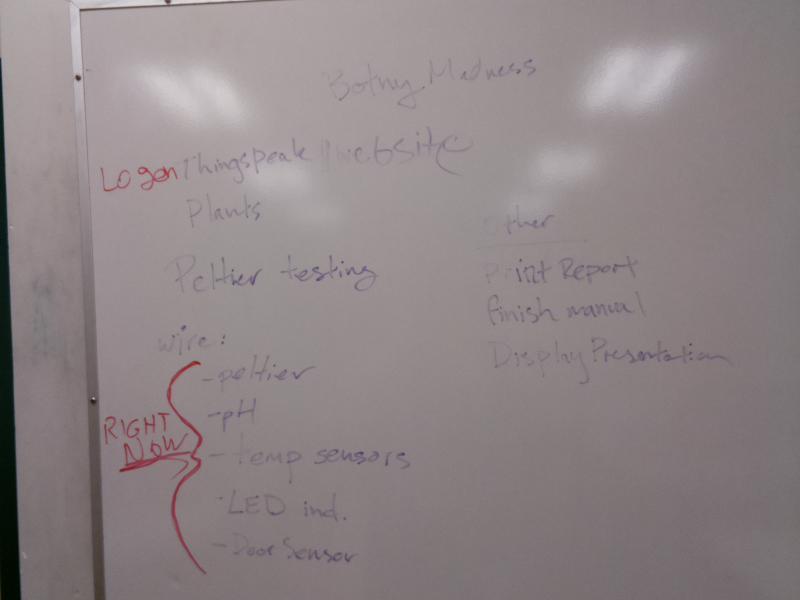 Botny Madness
Logon Thingspeak website
Plants
Peltier testing
wire:
- peltier
- pH
- temp sensors
- LED ind.
- Door Sensor
RIGHT
NOW
Other
Print Report
finish manual
Display Presentation